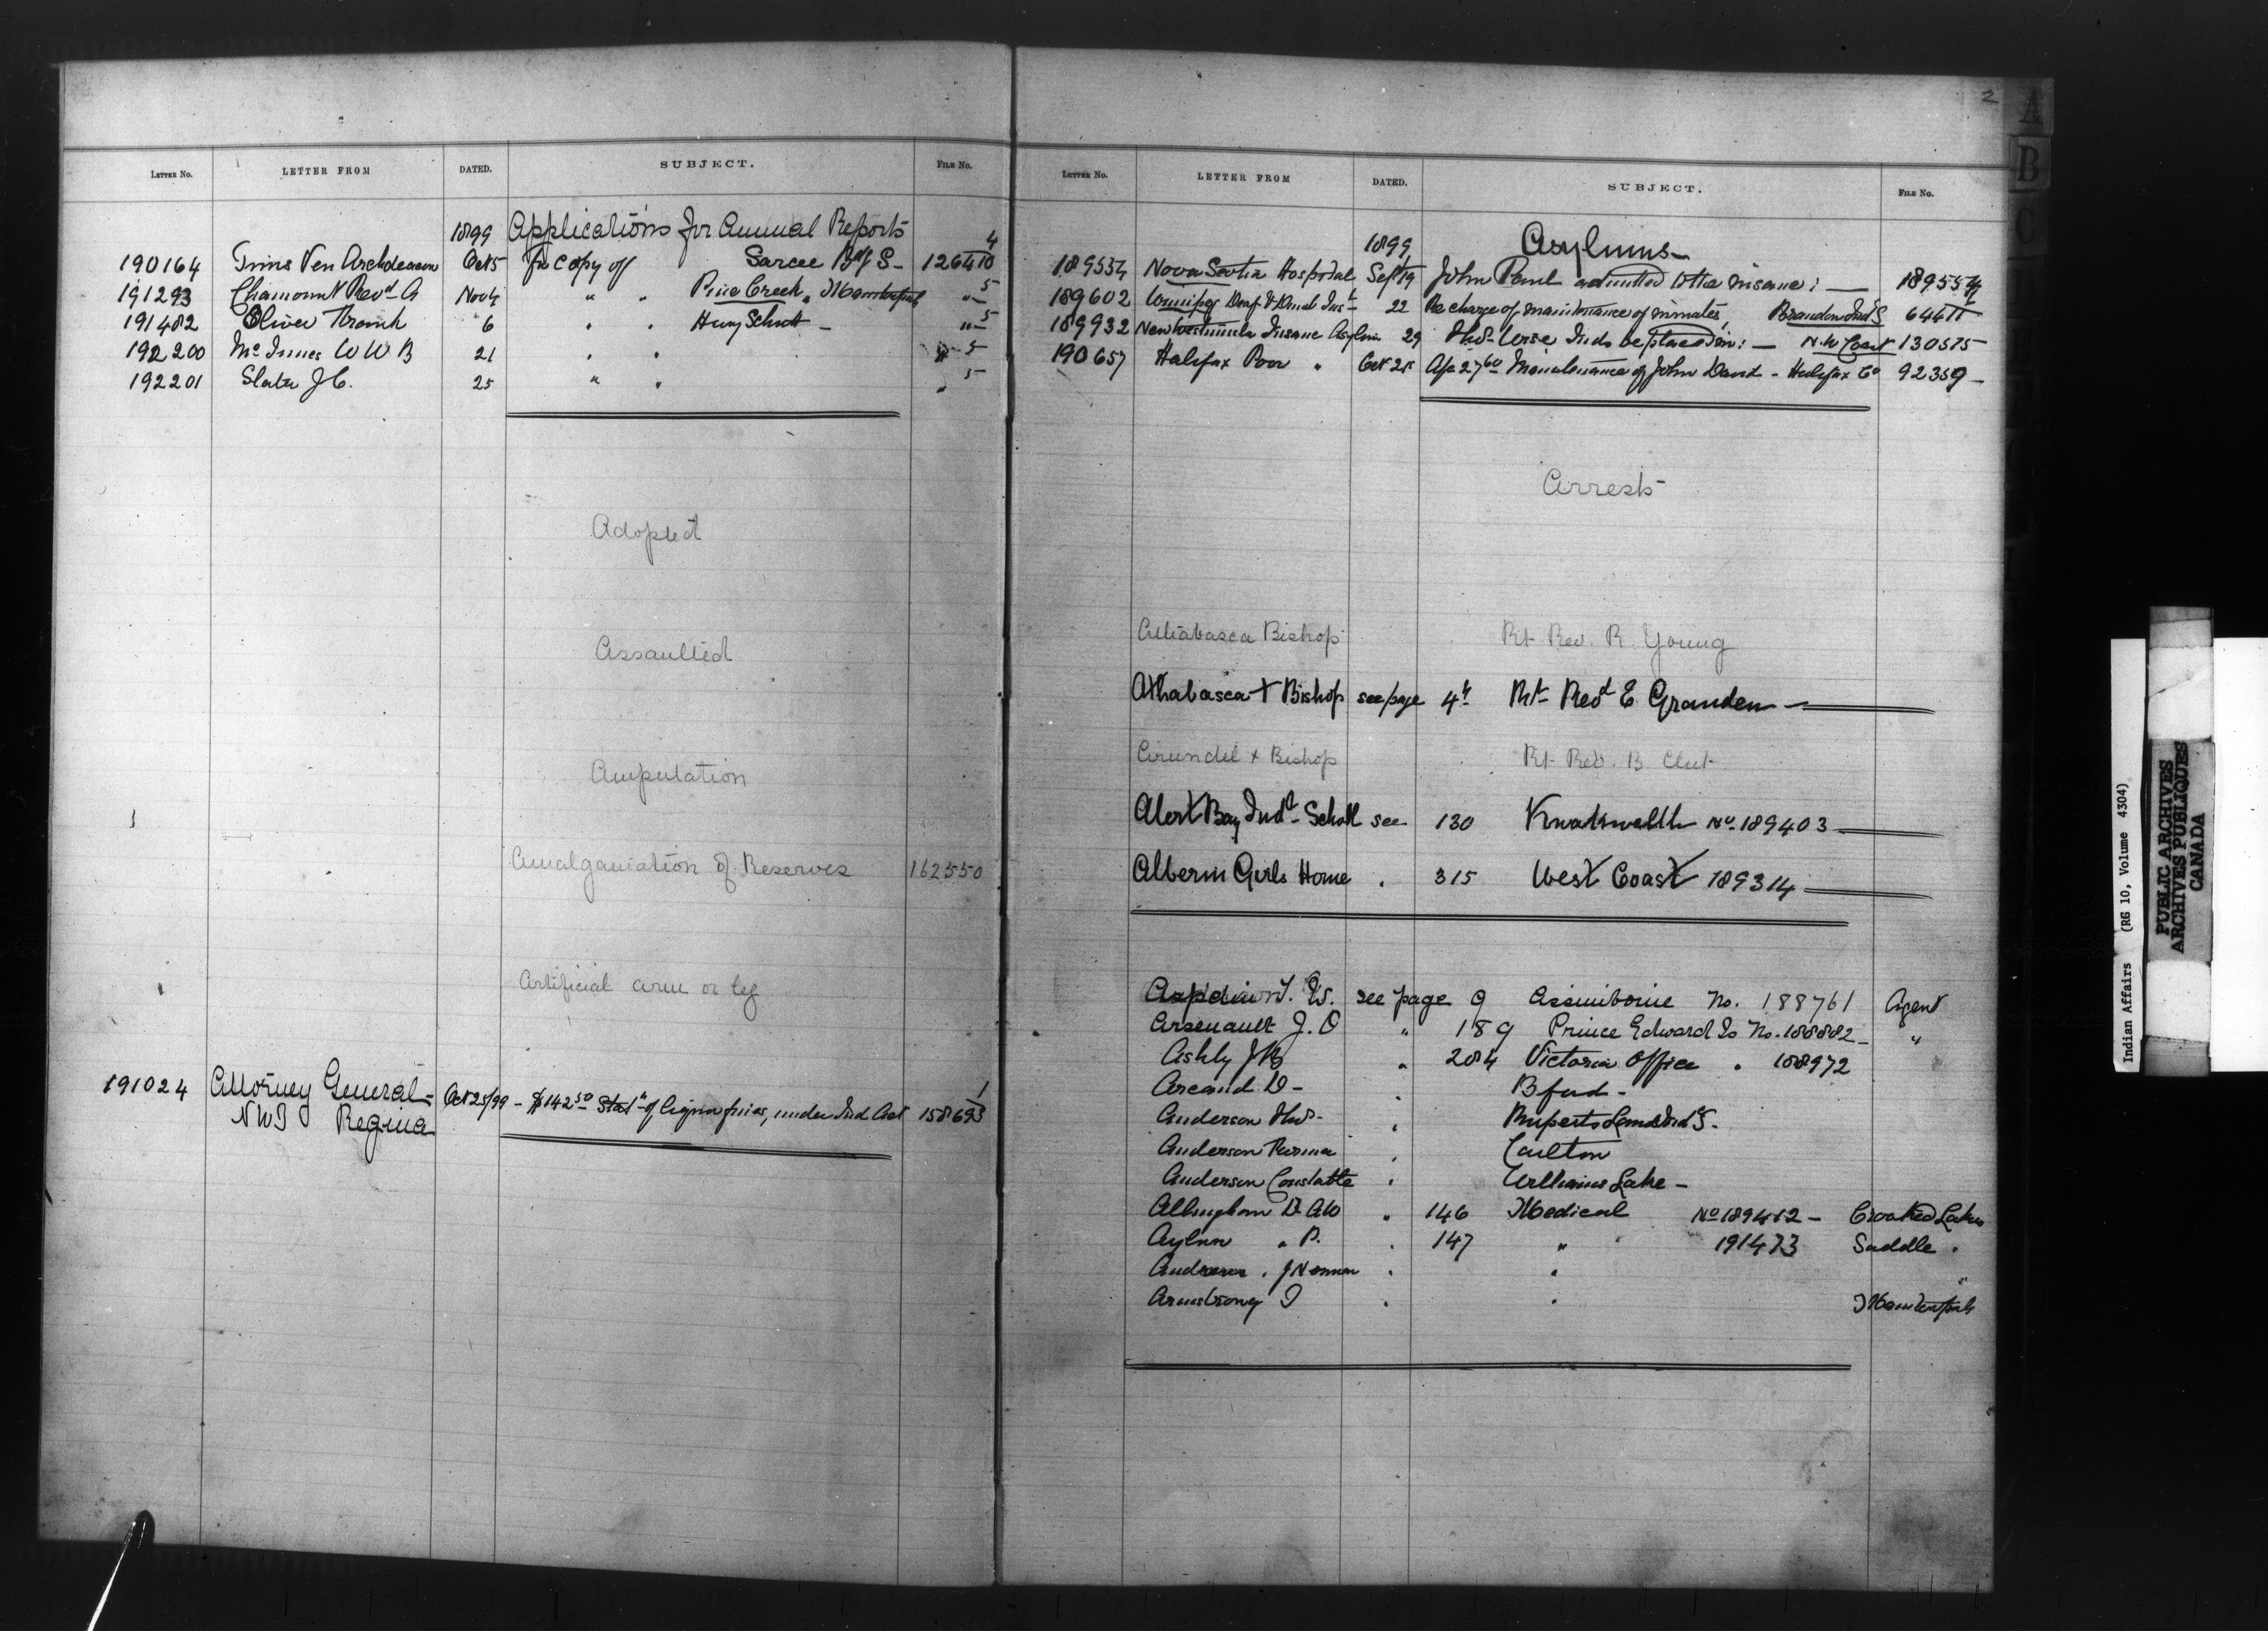 LETTER No. LETTER FROM DATED. SUBJECT. FILE No.
1899 Applications for Annual Reports 4
190164 Tims Ven Archdeacon Oct 5 for copy of Sarcee Bdg S- 126410
191293 Chaumont Revd A Nov 4 " " Pine Creek " 5
191482 Oliver Thomas 6 " " Henry Schutt - " 5
192200 McInnes W W B 21 " " " 5
192201 Slater J C. 25 " " " 5
Adopted
Assaulted
Amputation
Amalgamation of Reserves 162550
Artificial arm or leg
191024 Attorney General - Oct 25/99 - $142.50 Statt of fines, under Ind Act 158693
1
NWT Regina
2
LETTER No. LETTER FROM DATED. SUBJECT. FILE No.
1899 Asylums
189554 Nova Scotia Hospital Sept 19 John Paul admitted to the insane: — 189554
189602 Winnipeg Deaf & Dumb Inst 22 Re charge of maintenance of inmates, Brandon Ind S
189932 New Westminster Insane Asylum 29 Inds be placed in: — N.W Coast 130575
190657 Halifax Poor " Oct 25 27 60 Maintenance of John David - Halifax Co 92359 -
Arrests
Athabasca Bishop Rt Rev. R. Young
Athabasca + Bishop see page 4 Rt Revd E Grandin
Arundel + Bishop Rt Rev. B. Clut
Alert Bay Indl School see 130 Kwawkwelth No 189403
Alberni Girls Home " 315 West Coast 189314
Aspdin T. W. see page 9 Assiniboine No. 188761 Agent
Arsenault J. O " 189 Prince Edward Is No. 188882 "
Ashly J B " 284 Victoria Office " 188972
Arcand D - " Bford -
Anderson Thos - " Ruperts Land Ind S.
Anderson " Carlton
Anderson Constable " Williams Lake -
Allingham D AW " 146 Medical No 189412 - Crooked Lakes
Aylen " P. " 147 " 191473 Saddle "
" J Norman " "
Armstrong J " "
A
B
C
Indian Affairs (RG 10, Volume 4304)
PUBLIC ARCHIVES
ARCHIVES PUBLIQUES
CANADA